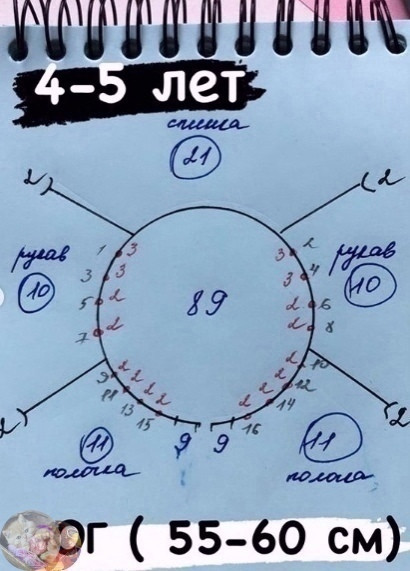 4-5 лет
спинка
21
2 2
рукав
10
рукав
10
1 3
3 3
5 2
7 2
3 2
3 4
2 6
2 8
89
9 2
11 2
13 2
15 2
2 10
2 12
2 14
2 16
9 9
2 2
11
полочка
11
полочка
ОГ ( 55-60 см)